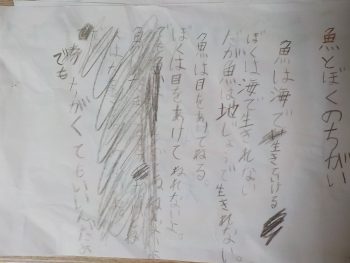 魚とぼくのちがい
魚は海で生きられる
ぼくは海で生きれない
だが魚は地じょうで生きれない。
魚は目をあけてねる。
ぼくは目をあけてねれないよ。
でも
ちがくてもいいんだよ